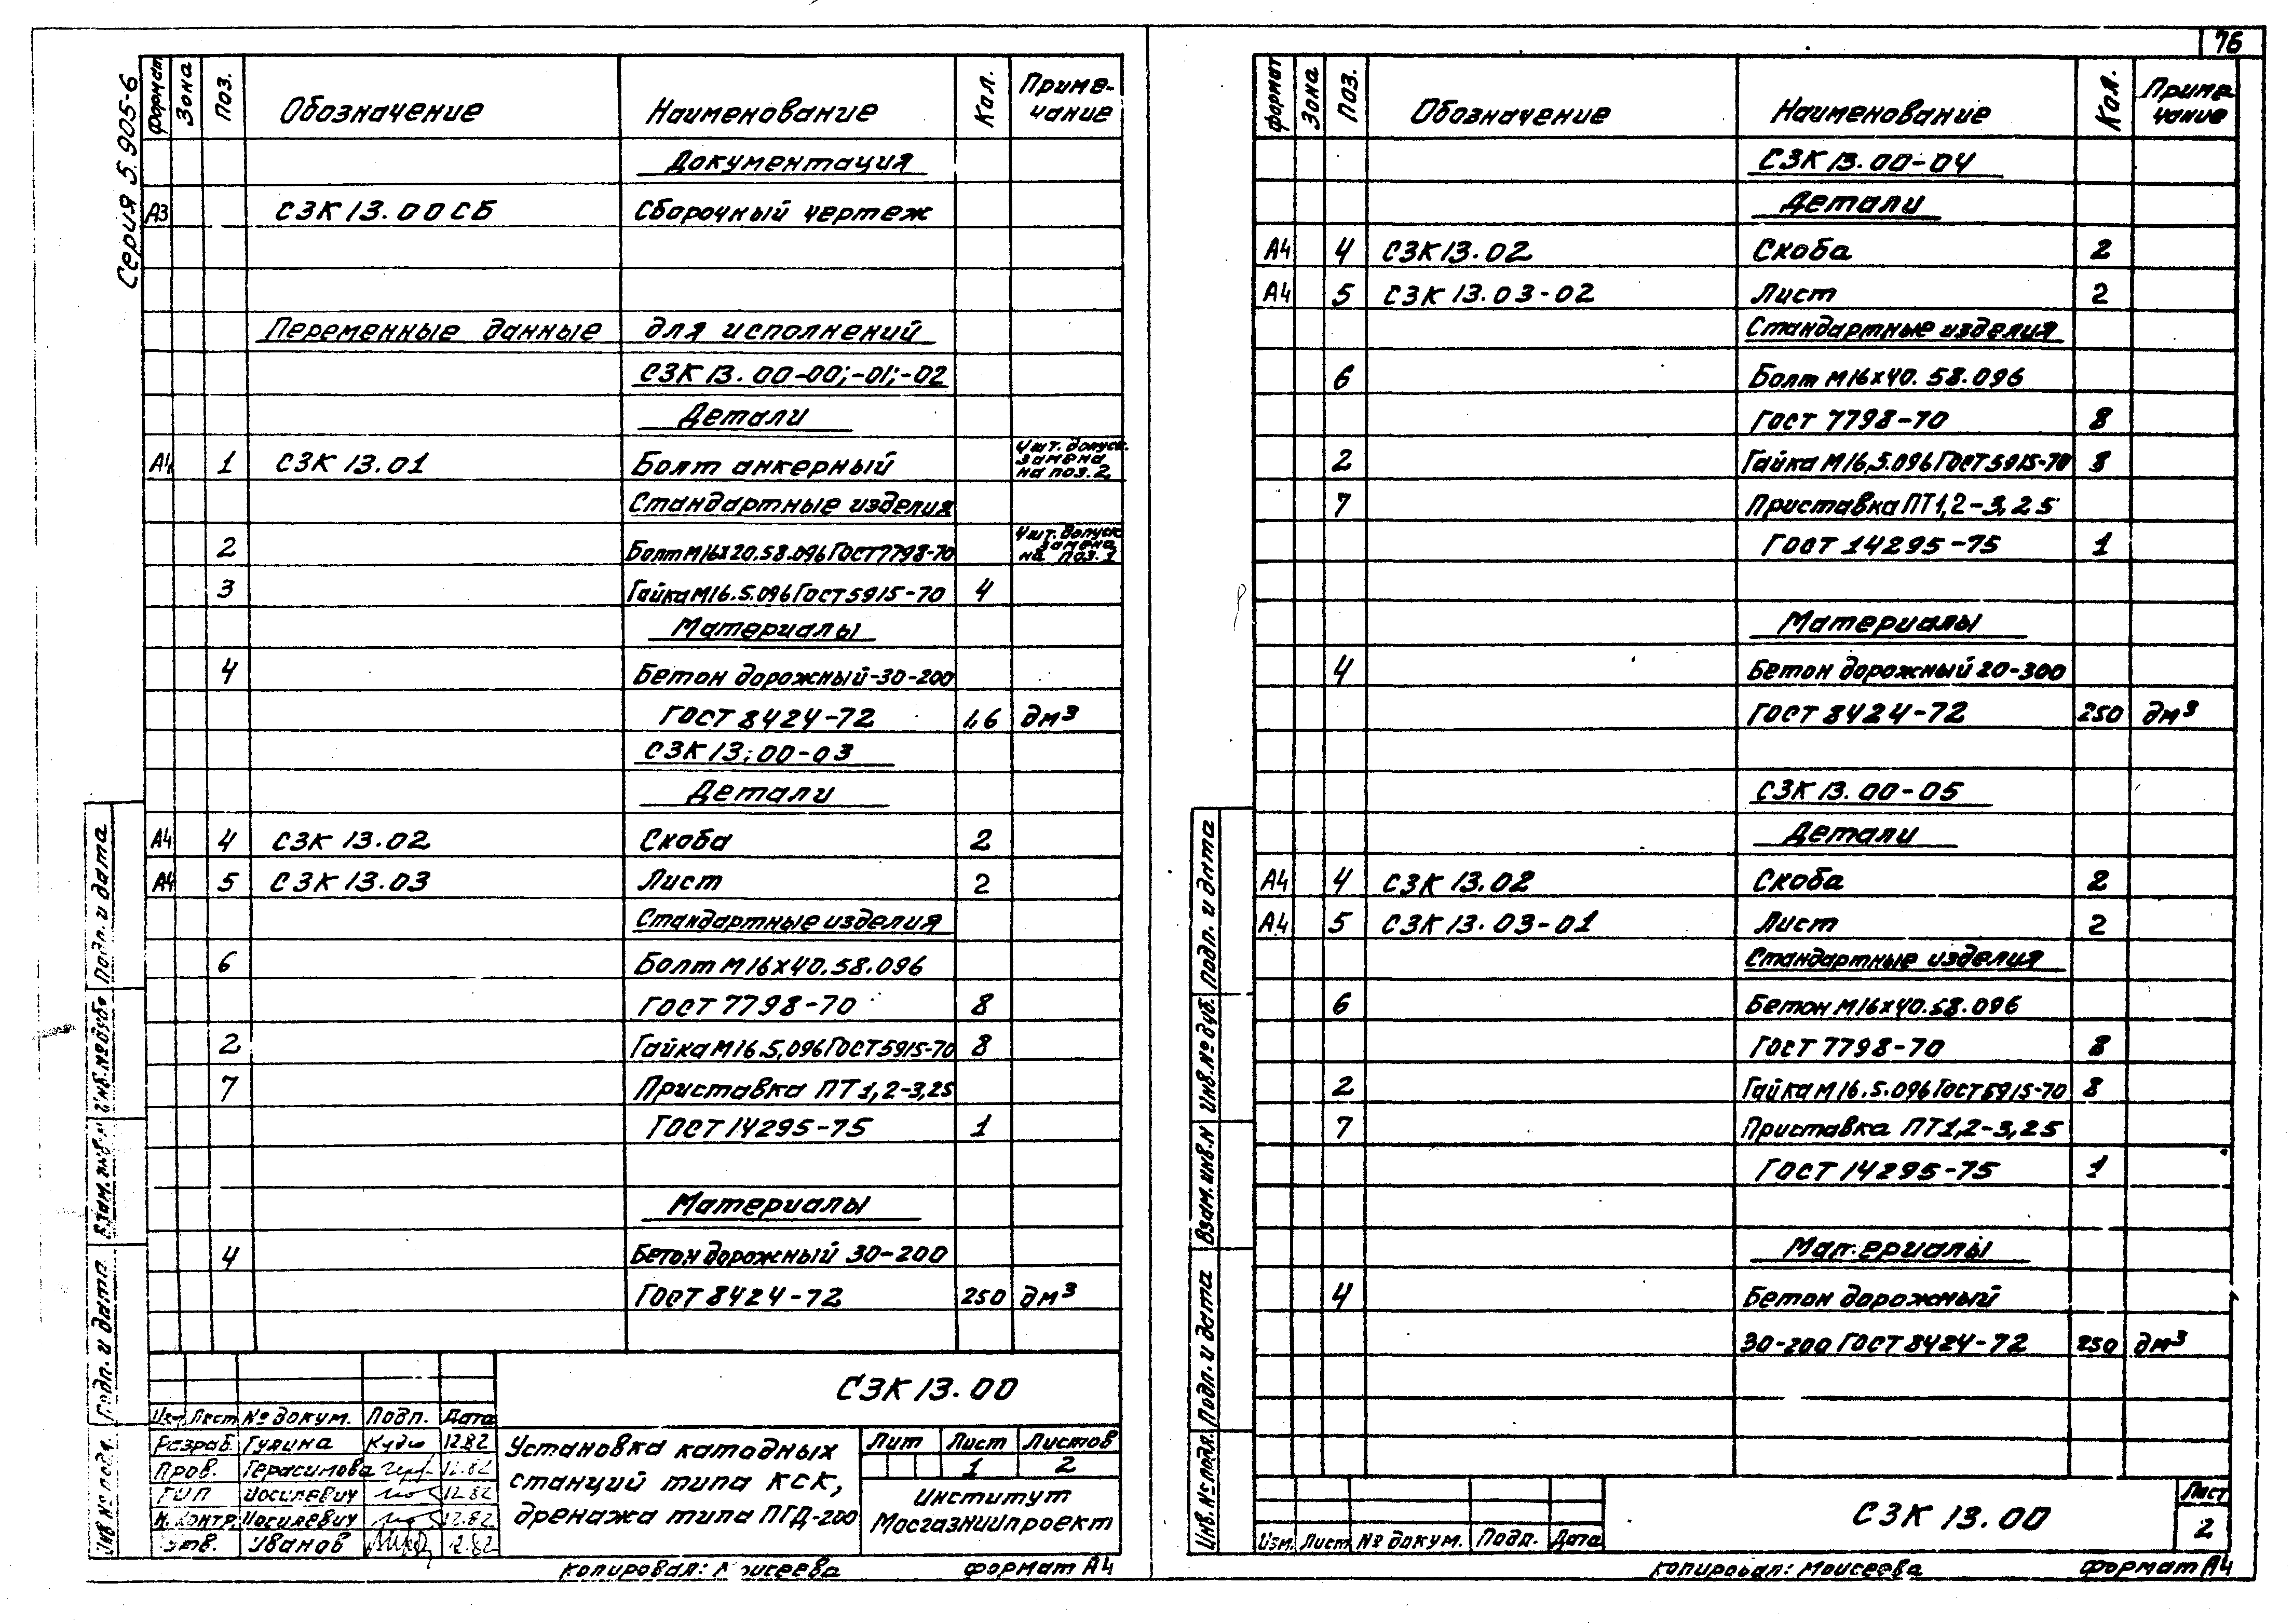 76
Серия 5.905-6
Формат Зона Поз. Обозначение Наименование Кол. Приме-
чание
Документация
А3 СЗК 13.00СБ Сборочный чертеж
Переменные данные для исполнений
СЗК 13.00-00;-01;-02
Детали
А4 1 СЗК 13.01 Болт анкерный 4 шт. допуск.
замена
на поз. 2
Стандартные изделия
2 Болт М16х20.58.096 ГОСТ 7798-70 4 шт. допуск
замена
на поз. 1
3 Гайка М16.5.096 ГОСТ 5915-70 4
Материалы
4 Бетон дорожный-30-200
ГОСТ 8424-72 1,6 дм³
СЗК 13;00-03
Детали
А4 4 СЗК 13.02 Скоба 2
А4 5 СЗК 13.03 Лист 2
Стандартные изделия
6 Болт М16х40.58.096
ГОСТ 7798-70 8
2 Гайка М16.5,096 ГОСТ 5915-70 8
7 Приставка ПТ 1,2-3,25
ГОСТ 14295-75 1
Материалы
4 Бетон дорожный 30-200
ГОСТ 8424-72 250 дм³
Подп. и дата
Инв. № дубл
Взам. инв. №
Подп. и дата
Инв № подл.
СЗК 13.00
Изм Лист № докум. Подп. Дата
Разраб. Гулина 12.82
Пров. Герасимова 12.82
ГИП Иосилевич 12.82
Н. контр. Иосилевич 12.82
Утв. Иванов 12.82
Установка катодных
станций типа КСК,
дренажа типа ПГД-200
Лит Лист Листов
1 2
Институт
Мосгазниипроект
Копировал: Моисеева Формат А4
Формат Зона Поз. Обозначение Наименование Кол. Приме
чание
СЗК 13.00-04
Детали
А4 4 СЗК 13.02 Скоба 2
А4 5 СЗК 13.03-02 Лист 2
Стандартные изделия
6 Болт М16х40.58.096
ГОСТ 7798-70 8
2 Гайка М16,5.096 ГОСТ 5915-70 8
7 Приставка ПТ1,2-3,25
ГОСТ 14295-75 1
Материалы
4 Бетон дорожный 20-300
ГОСТ 8424-72 250 дм³
СЗК 13.00-05
Детали
А4 4 СЗК 13.02 Скоба 2
А4 5 СЗК 13.03-01 Лист 2
Стандартные изделия
6 Бетон М16х40.58.096
ГОСТ 7798-70 8
2 Гайка М16.5.096 ГОСТ 5915-70 8
7 Приставка ПТ1,2-3,25
ГОСТ 14295-75 1
Материалы
4 Бетон дорожный
30-200 ГОСТ 8424-72 250 дм³
Подп. и дата
Инв. № дубл.
Взам. инв. №
Подп. и дата
Инв. № подл.
Изм. Лист № докум. Подп. Дата
СЗК 13.00
Лист
2
Копировал: Моисеева Формат А4